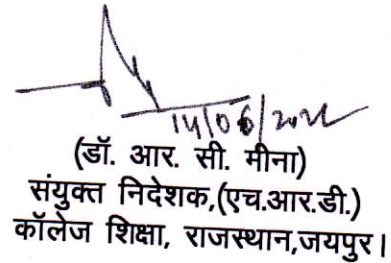 14/06/2022
(डॉ. आर. सी. मीना)
संयुक्त निदेशक,(एच.आर.डी.)
कॉलेज शिक्षा, राजस्थान,जयपुर।